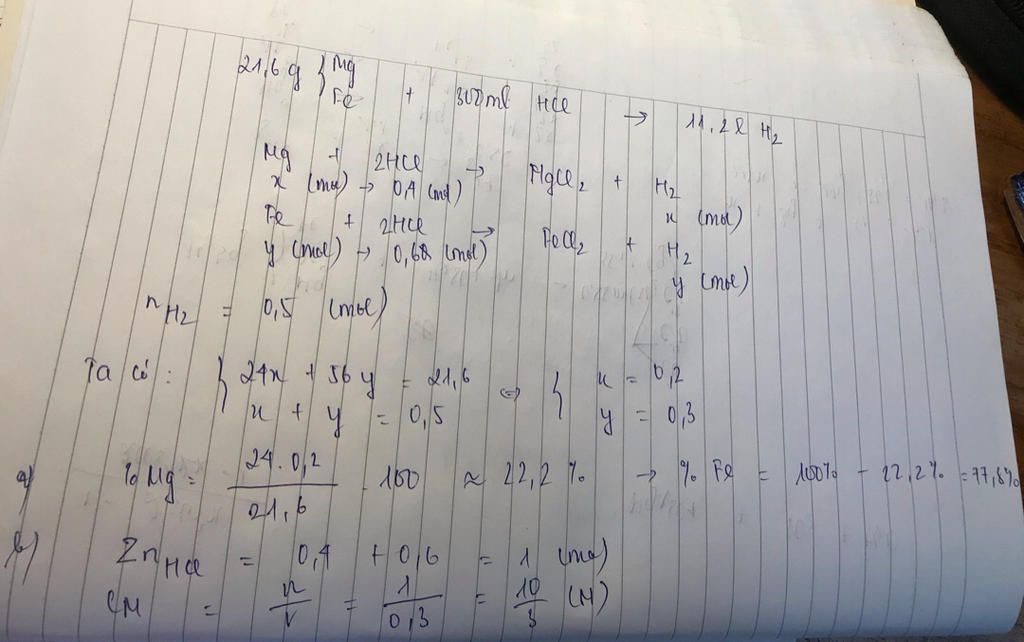 21,6 g { Mg
Fe + 300 ml HCl → 11,2 l H2
Mg + 2HCl → MgCl2 + H2
x (mol) → 0,4 (mol) x (mol)
Fe + 2HCl → FeCl2 + H2
y (mol) → 0,6 (mol) y (mol)
nH2 = 0,5 (mol)
Ta có : { 24x + 56y = 21,6 ⇔ { x = 0,2
x + y = 0,5 y = 0,3
a) % Mg = 24 . 0,2 / 21,6 . 100 ≈ 22,2 % → % Fe = 100% - 22,2% = 77,8%
b) ΣnHCl = 0,4 + 0,6 = 1 (mol)
CM = n/V = 1/0,3 = 10/3 (M)